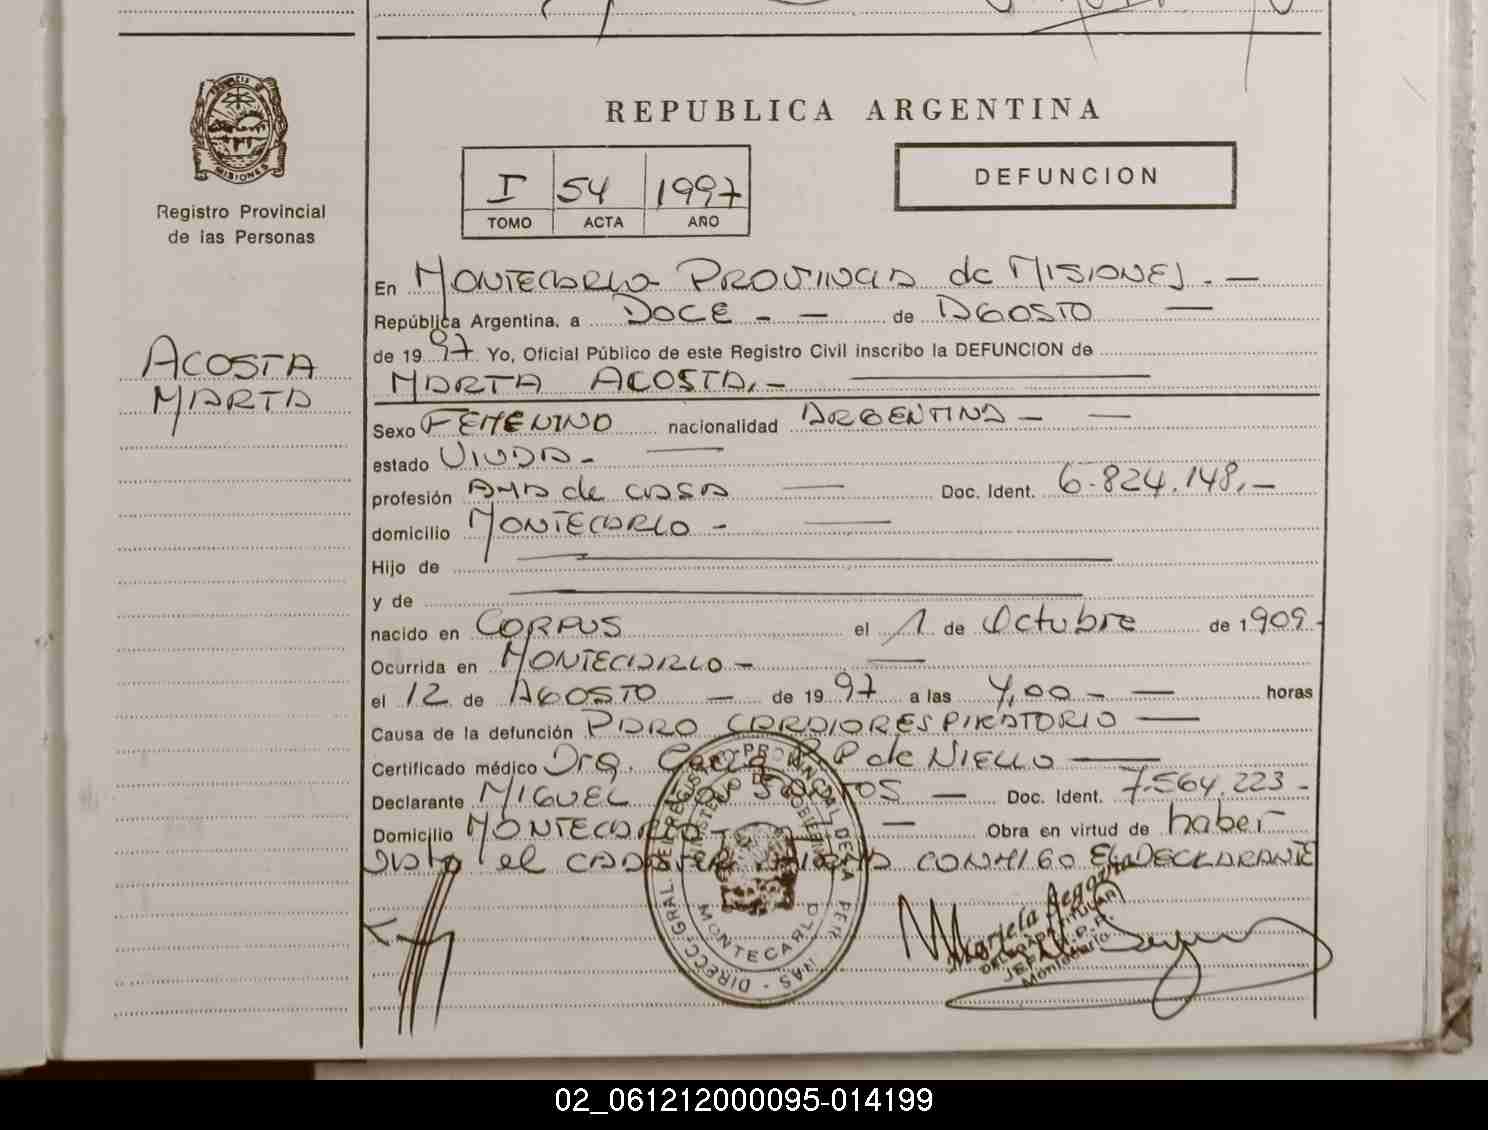 REPUBLICA ARGENTINA
PROVINCIA DE
MISIONES
Registro Provincial
de las Personas
I 54 1997
TOMO ACTA AÑO
DEFUNCION
ACOSTA
MARTA
En MONTECARLO PROVINCIA de MISIONES. —
República Argentina, a DOCE - — de AGOSTO —
de 1997 Yo, Oficial Público de este Registro Civil inscribo la DEFUNCION de
MARTA ACOSTA.- —
Sexo FEMENINO nacionalidad ARGENTINA - —
estado VIUDA - —
profesión AMA de CASA — Doc. Ident. 6.824.148.-
domicilio MONTECARLO - —
Hijo de —
y de —
nacido en CORPUS el 1 de Octubre de 1909.
Ocurrida en MONTECARLO - —
el 12 de AGOSTO — de 1997 a las 4,00 - — horas
Causa de la defunción PARO CARDIORESPIRATORIO —
Certificado médico Dra. P de NIELLO —
Declarante MIGUEL SANTOS — Doc. Ident. 7.564.223 -
Domicilio MONTECARLO - — Obra en virtud de haber
visto el CADAVER FIRMA CONMIGO EL DECLARANTE
DIRECC. GRAL. DEL REGISTRO PROVINCIAL DE LAS PERSONAS
MINISTERIO DE GOBIERNO
MONTECARLO
DELEGADA TITULAR
Montecarlo
02_061212000095-014199